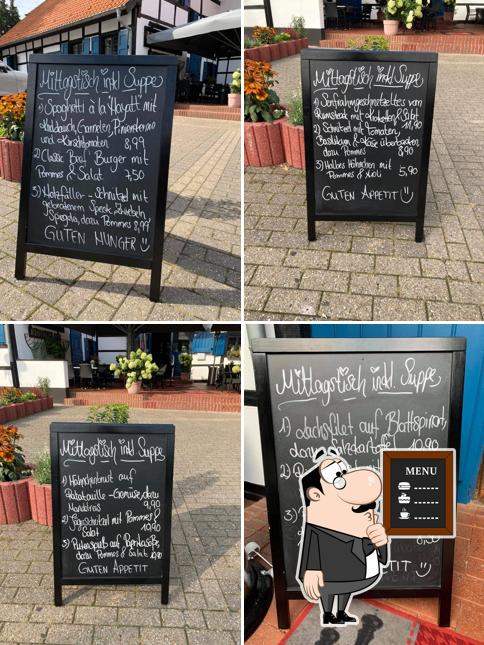 Mittagstisch inkl. Suppe
1) Spaghetti à la "Hayati" mit
Knoblauch, Garnelen, Pinienkernen
und Kirschtomaten 8,99
2) Classic Beef Burger mit
Pommes & Salat 7,50
3) Holzfäller-Schnitzel mit
gebratenem Speck, Zwiebeln,
Spiegelei, dazu Pommes 8,99
GUTEN HUNGER
Mittagstisch inkl. Suppe
1) Senfrahmgeschnetzeltes vom
Rumpsteak mit Kroketten & Salat
2) Schnitzel mit Tomaten,
Basilikum & Käse überbacken,
dazu Pommes 8,90
3) Halbes Hähnchen mit
Pommes & Aioli 5,90
GUTEN APPETIT
Mittagstisch inkl. Suppe
1) Hähnchenbrust auf
Ratatouille-Gemüse, dazu
9,90
2) Jägerschnitzel mit Pommes &
Salat 10,90
3) Putenspieß auf Paprikasoße,
dazu Pommes & Salat
GUTEN APPETIT
Mittagstisch inkl. Suppe
1) Lachsfilet auf Blattspinat,
dazu 10,90
2)
3)
MENU